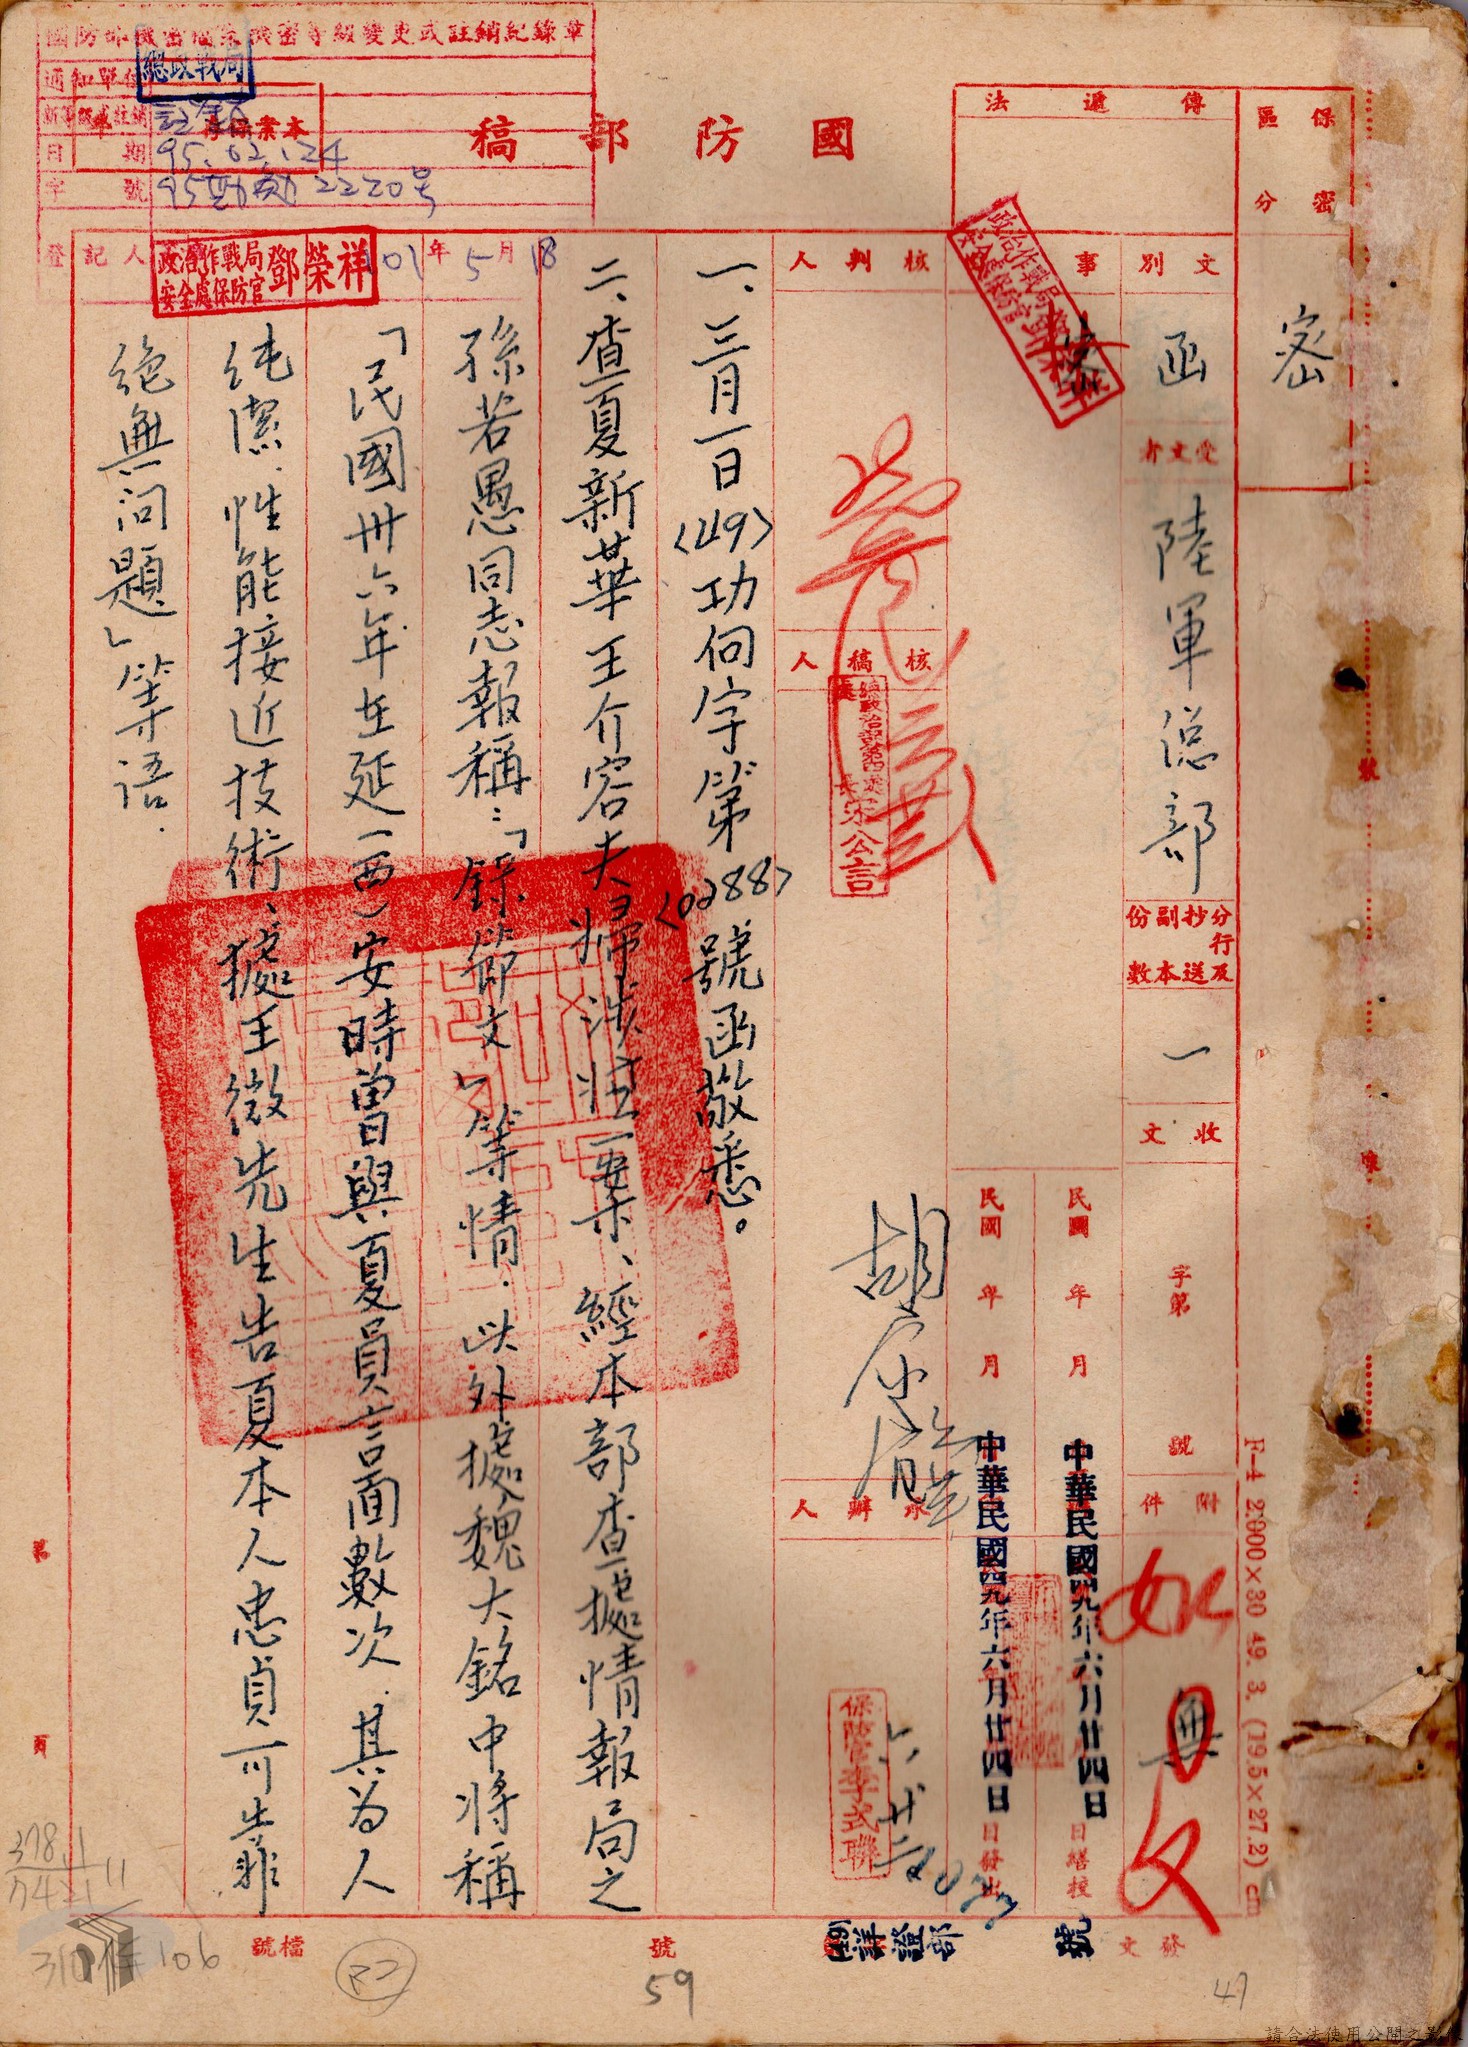 國防部機密檔案機密等級變更或註銷紀錄章
通知單位
總政戰局
新等級或註銷
註銷
本案保存年
日期
95.02.24
字號
2220号
登記人
政治作戰局
安全處保防官
鄧榮祥
101年5月18
國防部稿
傳遞法
保密區分
密
文別
函
事
受文者
陸軍總部
分行及抄送副本份數
一
收文
字第
號
附件
如
無
文
發文
核判人
核稿人
總政治部第四處
處長宋公言
承辦人
保防官李式聯
民國年月
中華民國四九年六月廿四日
日繕校
民國年月
中華民國四九年六月廿四日
日發出
(49)詳證部
1033
號
一、三月一日(49)功伺字第(0288)號函敬悉。
二、查夏新華王介容夫婦涉嫌一案、經本部查據情報局之
孫若愚同志報稱:「錄節文」等情.此外據魏大銘中將稱
「民國卅六年在延(西)安時曾與夏員言面數次.其为人
纯潔.性能接近技術、據王微先生告夏本人忠貞可靠
絕無问題」等语.
第
頁
檔號
號
378.1
7421
11
310
106
B2
59
47
F-4 2.000×30 49. 3. (19.5×27.2) cm
請合法使用公開之影像